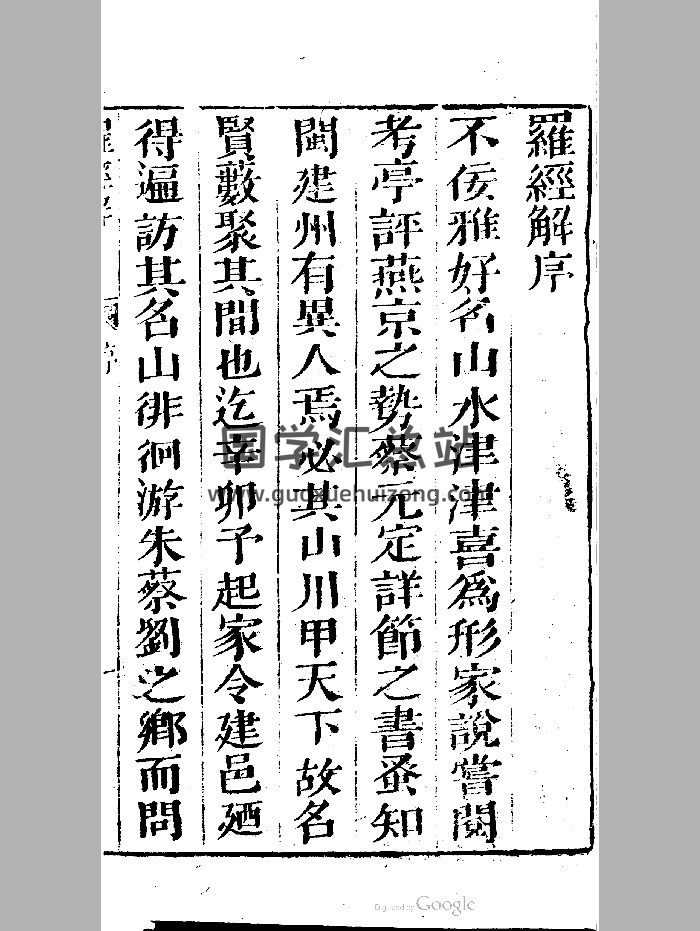 羅經解序
不佞雅好名山水津津喜為形家說嘗閱
考亭評燕京之勢蔡元定詳節之書蚤知
閩建州有異人焉必其山川甲天下故名
賢藪聚其間也迄辛卯予起家令建邑廼
得遍訪其名山徘徊游朱蔡劉之鄉而問
国学汇总站
www.guoxuehuizong.com
Digitized by Google